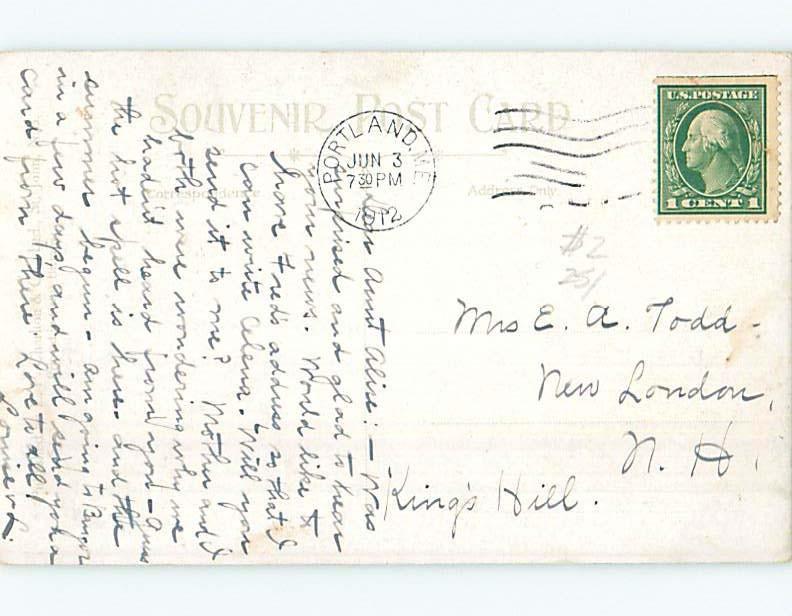 SOUVENIR POST CARD
Correspondence
Address Only.
PORTLAND, ME.
JUN 3
7 30 PM
1912
U.S. POSTAGE
1 CENT 1
$2
25/
Mrs E. A. Todd -
New London,
N. H.
King's Hill.
Dear Aunt Alice: - Was
surprised and glad to hear
your news. Would like to
have Fred's address so that I
can write Celena. Will you
send it to me? Mother and I
both were wondering why we
hadn't heard from you - Guess
the hot spell is here - and the
summer begun - am going to Bangor
in a few days and will send you a
card from there Love to all,
Louise L.